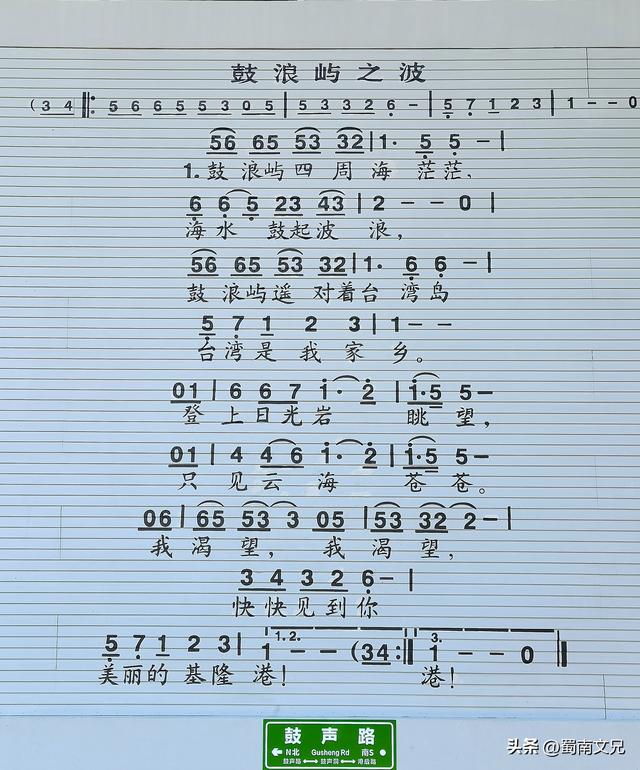 鼓浪屿之波
(3 4 ‖: 5 6 6 5 5 3 0 5 | 5 3 3 2 6 - | 5 7 1 2 3 | 1 - - 0
56 65 53 32 | 1· 5 5 - |
1.鼓浪屿四周海茫茫,
6 6 5 23 43 | 2 - - 0 |
海水鼓起波浪,
56 65 53 32 | 1· 6 6 - |
鼓浪屿遥对着台湾岛
5 7 1 2 3 | 1 - -
台湾是我家乡。
01 | 6 6 7 1· 2 | 1·5 5 -
登上日光岩眺望,
01 | 4 4 6 1· 2 | 1·5 5 -
只见云海苍苍。
06 | 65 53 3 05 | 53 32 2 - |
我渴望,我渴望,
3 4 3 2 6 - |
快快见到你
5 7 1 2 3 | 1.2. 1 - - (34 :‖ 3. 1 - - 0 ‖
美丽的基隆港!港!
鼓声路
N北 Gusheng Rd 南S
鼓声路 鼓声洞 港后路
头条 @蜀南文兄